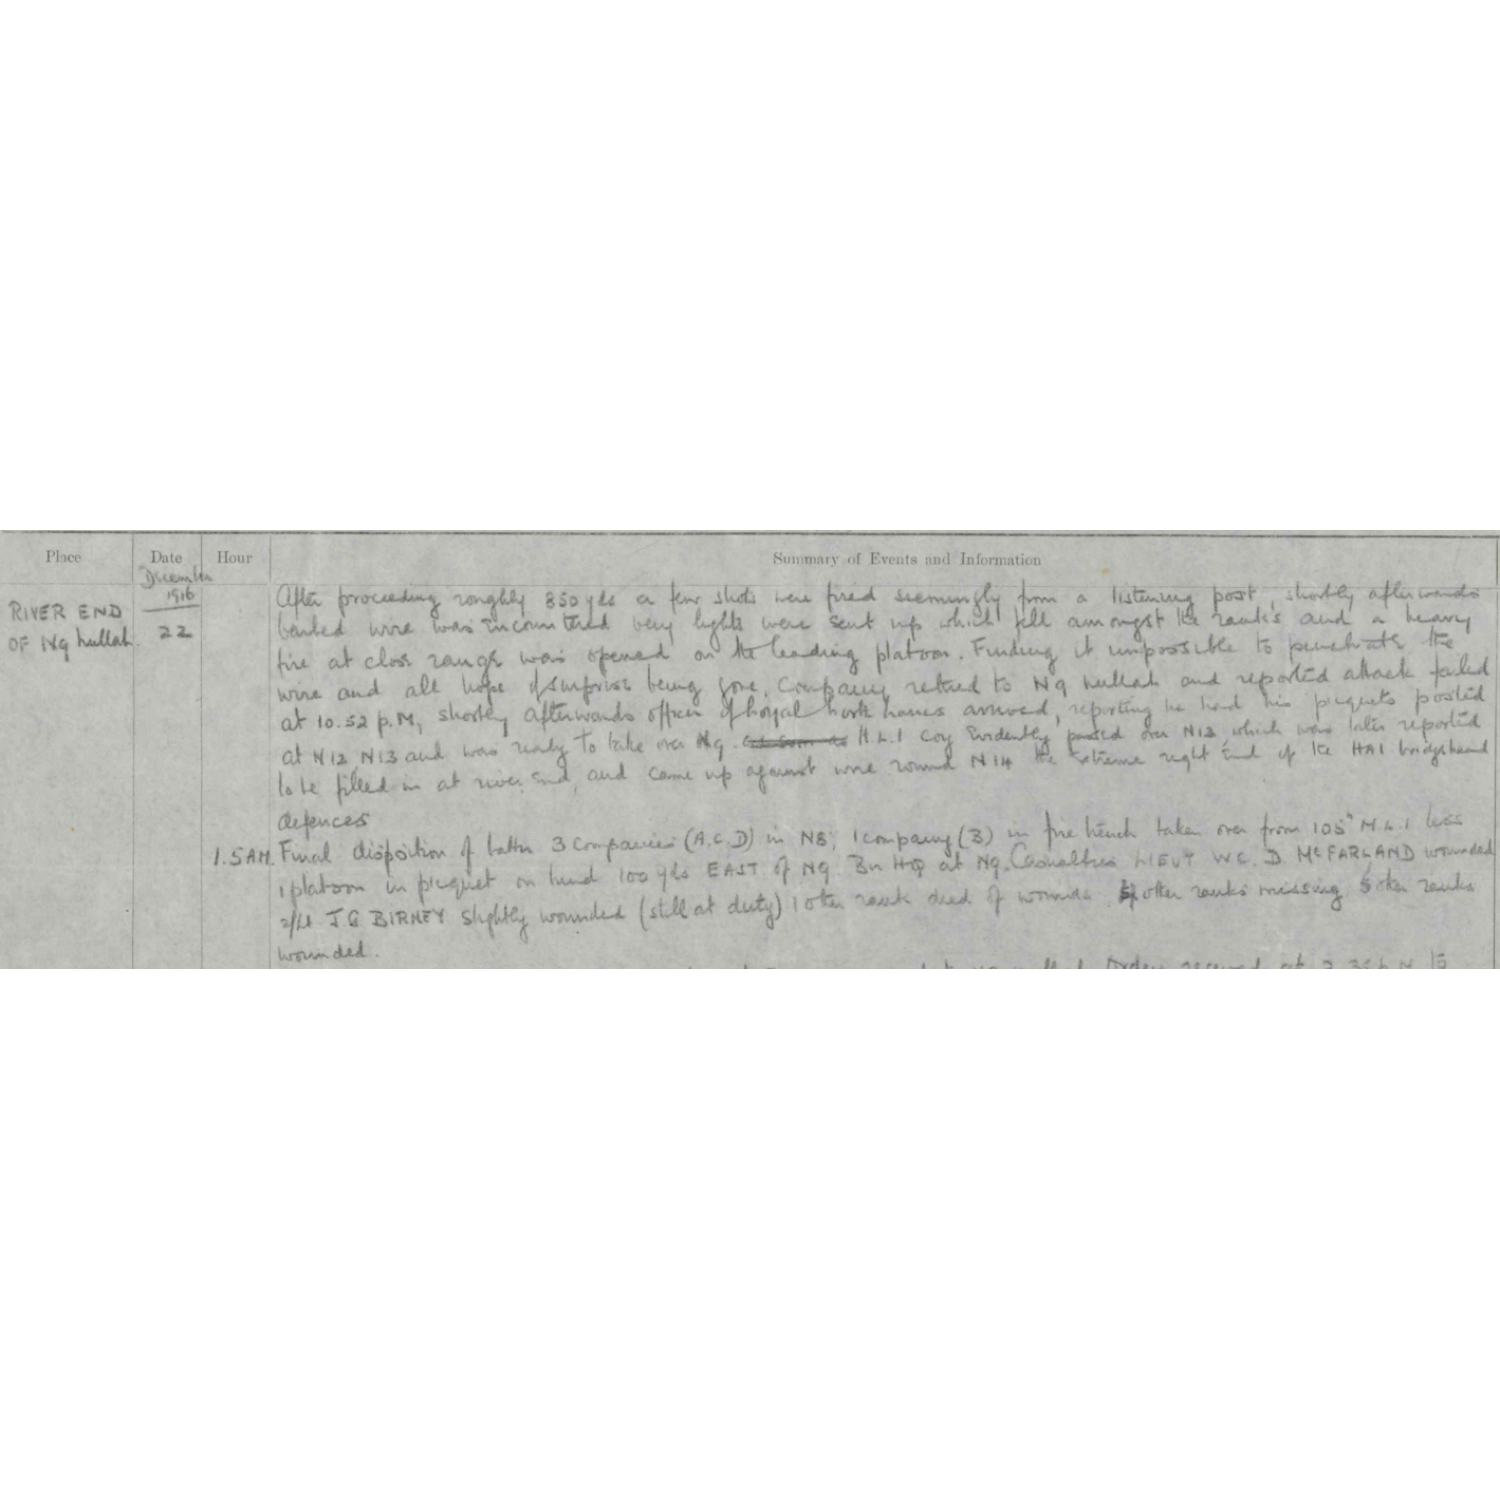 Place Date Hour Summary of Events and Information
December
1916
RIVER END
OF N9 nullah
22
After proceeding roughly 850 yds a few shots were fired seemingly from a listening post, shortly afterwards
barbed wire was encountered very lights were sent up which fell amongst the ranks and a heavy
fire at close range was opened on the leading platoon. Finding it impossible to penetrate the
wire and all hope of surprise being gone, Company retired to N9 nullah and reported attack failed
at 10.52 p.m, shortly afterwards officer of Loyal north lancs arrived, reporting he had his picquets posted
at N12 N13 and was ready to take over N9. H.L.I Coy evidently passed over N12 which was later reported
to be filled in at river end, and came up against wire round N14 the extreme right end of the HAI bridgehead
defences
1.5 AM. Final disposition of battn 3 Companies (A.C.D) in N8, 1 company (B) in fire trench taken over from 105th M.L.I less
1 platoon in picquet on bund 100 yds EAST of N9. Bn HQ at N9. Casualties LIEUT W.C. D. McFARLAND wounded
2/Lt J G BIRNEY slightly wounded (still at duty) 1 other rank died of wounds, other ranks missing, 5 other ranks
wounded.